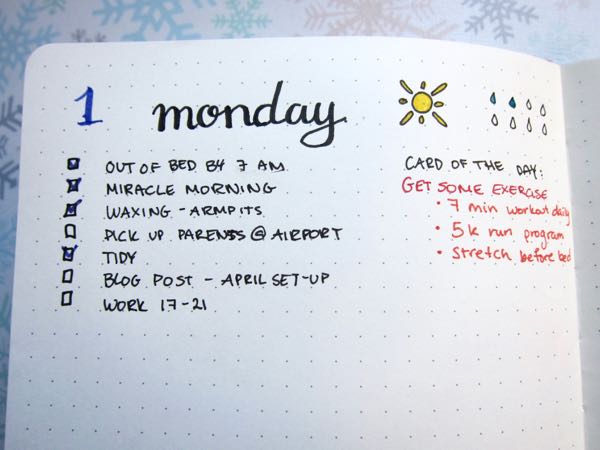 1 monday
OUT OF BED BY 7 AM
MIRACLE MORNING
WAXING - ARMPITS
PICK UP PARENTS @ AIRPORT
TIDY
BLOG POST - APRIL SET-UP
WORK 17-21
CARD OF THE DAY:
GET SOME EXERCISE
• 7 min workout daily
• 5k run program
• Stretch before bed